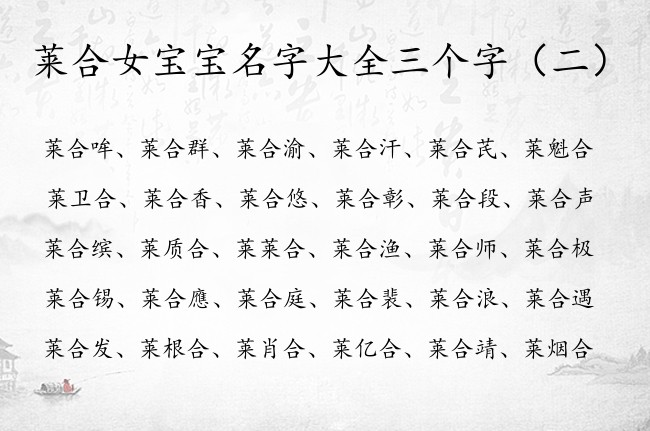 莱合女宝宝名字大全三个字（二）
莱合哞、莱合群、莱合渝、莱合汗、莱合芪、莱魁合
莱卫合、莱合香、莱合悠、莱合彰、莱合段、莱合声
莱合缤、莱质合、莱莱合、莱合渔、莱合师、莱合极
莱合锡、莱合應、莱合庭、莱合裴、莱合浪、莱合遇
莱合发、莱根合、莱肖合、莱亿合、莱合靖、莱烟合